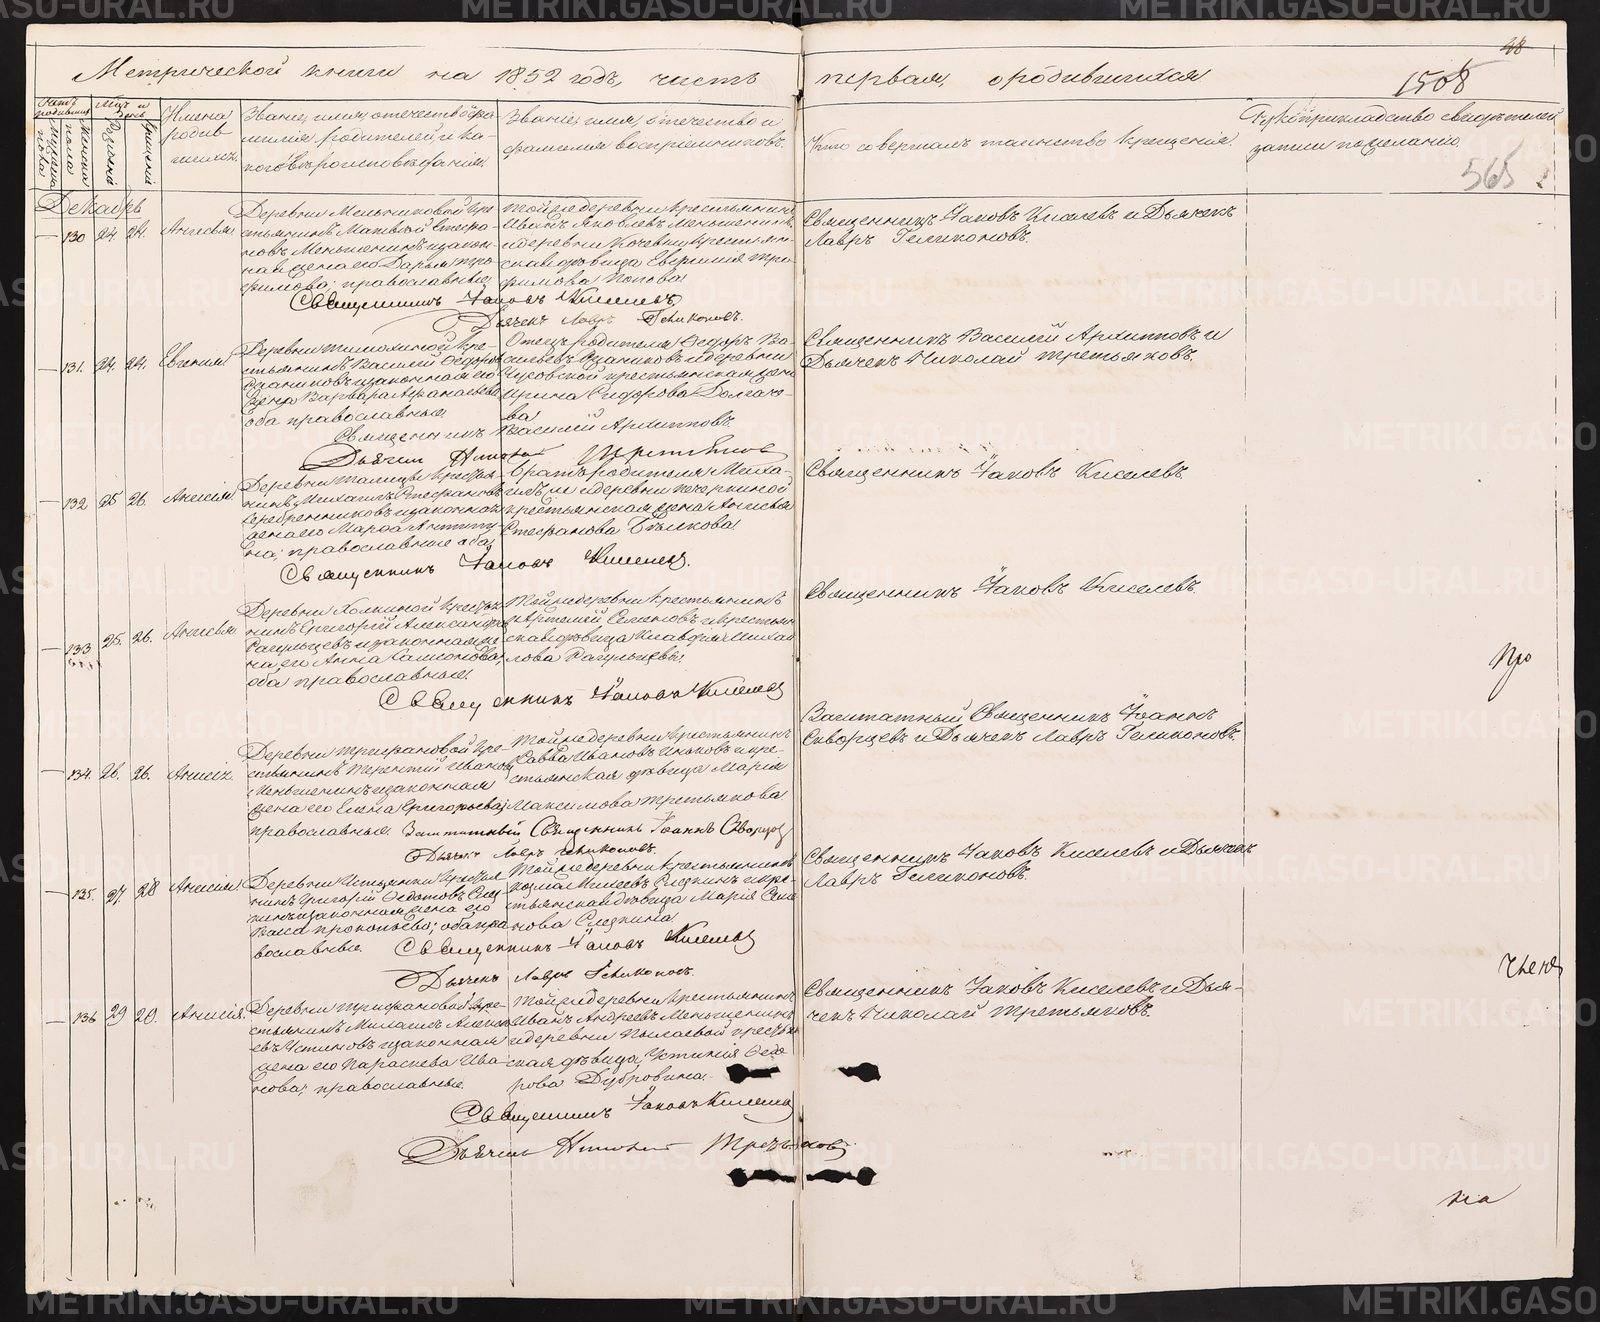 48
Метрической книги на 1852 годъ, часть первая, о родившихся
1508
Счетъ родившихся
мужеска пола
женска пола
Мѣц. и день
рожденiя
крещенiя
Имена родившихся.
Званiе, имя, отечество и фамилiя родителей и какого вѣроисповѣданiя.
Званiе, имя, отечество и фамилiя воспрiемниковъ.
Кто совершалъ таинство крещенiя.
Рукоприкладство свидѣтелей записи по желанiю.
565
Декабрь
130 24 24. Анисья
Деревни Мельниковой кре-
стьянинъ Матвей Стефа-
новъ Меньшенинъ и закон-
ная жена его Дарья Тро-
фимова, православные.
Той же деревни крестьянинъ
Иванъ Яковлевъ Меньшенинъ
и деревни Кочевки крестьян-
ская дѣвица Евгения Тро-
фимова Попова.
Священникъ Iаковъ Киселевъ и Дьячекъ
Лавръ Геликоновъ.
Священникъ Iаковъ Киселевъ
Дьячекъ Лавръ Геликоновъ.
131. 24. 24. Евгения
Деревни Тимохиной кре-
стьянинъ Василiй Федоровъ
и законная его
жена Варвара Афанасьева
оба православные.
Отецъ родителя Федоръ Ва-
сильевъ и деревни
Чусовской крестьянская жена
Ирина Сидорова Долгано-
ва
Священникъ Василiй Архипповъ и
Дьячекъ Николай Третьяковъ.
Священникъ Василiй Архипповъ.
Дьячекъ Николай Третьяковъ
132 25 26. Анисiя
Деревни Талицы крестья-
нинъ Михаилъ Стефановъ
Серебренниковъ и законная
жена его Марѳа Антипи-
на; православные оба.
Братъ родителя Миха-
илъ же и деревни Печеркиной
крестьянская жена Анисья
Стефанова Бѣлкова.
Священникъ Iаковъ Киселевъ.
Священникъ Iаковъ Киселевъ.
133 25. 26. Анисья
Деревни Холкиной крестья-
нинъ Григорiй Александровъ
Рагульцевъ и законная же-
на его Анна Самсонова,
оба православные.
Той же деревни крестьянинъ
Артемiй Семеновъ и крестьян-
ская дѣвица Клавдiя Михай-
лова Рагульцевы.
Священникъ Iаковъ Киселевъ.
Священникъ Iаковъ Киселевъ
Про
134. 26. 26. Анисiя
Деревни Трифановой кре-
стьянинъ Терентiй Ивановъ
Меньшенинъ и законная
жена его Елена Григорьева;
православные.
Той же деревни крестьянинъ
Савва Ивановъ Иноковъ и кре-
стьянская дѣвица Марiя
Максимова Третьякова
Заштатный Священникъ Iоаннъ
Скворцевъ и Дьячекъ Лавръ Геликоновъ.
Заштатный Священникъ Iоаннъ Скворцовъ
Дьячекъ Лавръ Геликоновъ.
135. 27. 28 Анисiя
Деревни Истьянки крестья-
нинъ Григорiй Федотовъ След-
кинъ и законная жена его
Васса Прокопьева; оба пра-
вославные.
Той же деревни крестьянинъ
Козма Михеевъ Следкинъ и кре-
стьянская дѣвица Марiя Семе-
нова Следкина.
Священникъ Iаковъ Киселевъ и Дьячекъ
Лавръ Геликоновъ.
Священникъ Iаковъ Киселевъ
Дьячекъ Лавръ Геликоновъ.
Члена
136 29 29. Анисiя.
Деревни Трифановой кре-
стьянинъ Михаилъ Алексе-
евъ Устиновъ и законная
жена его Параскева Ива-
нова; православные.
Той же деревни крестьянинъ
Иванъ Андреевъ Меньшенинъ
и деревни Пылаевой крестьян-
ская дѣвица Устинiя Федо-
рова Дубровина.
Священникъ Iаковъ Киселевъ и Дья-
чекъ Николай Третьяковъ.
Священникъ Iаковъ Киселевъ
Дьячекъ Николай Третьяковъ
на
METRIKI.GASO-URAL.RU